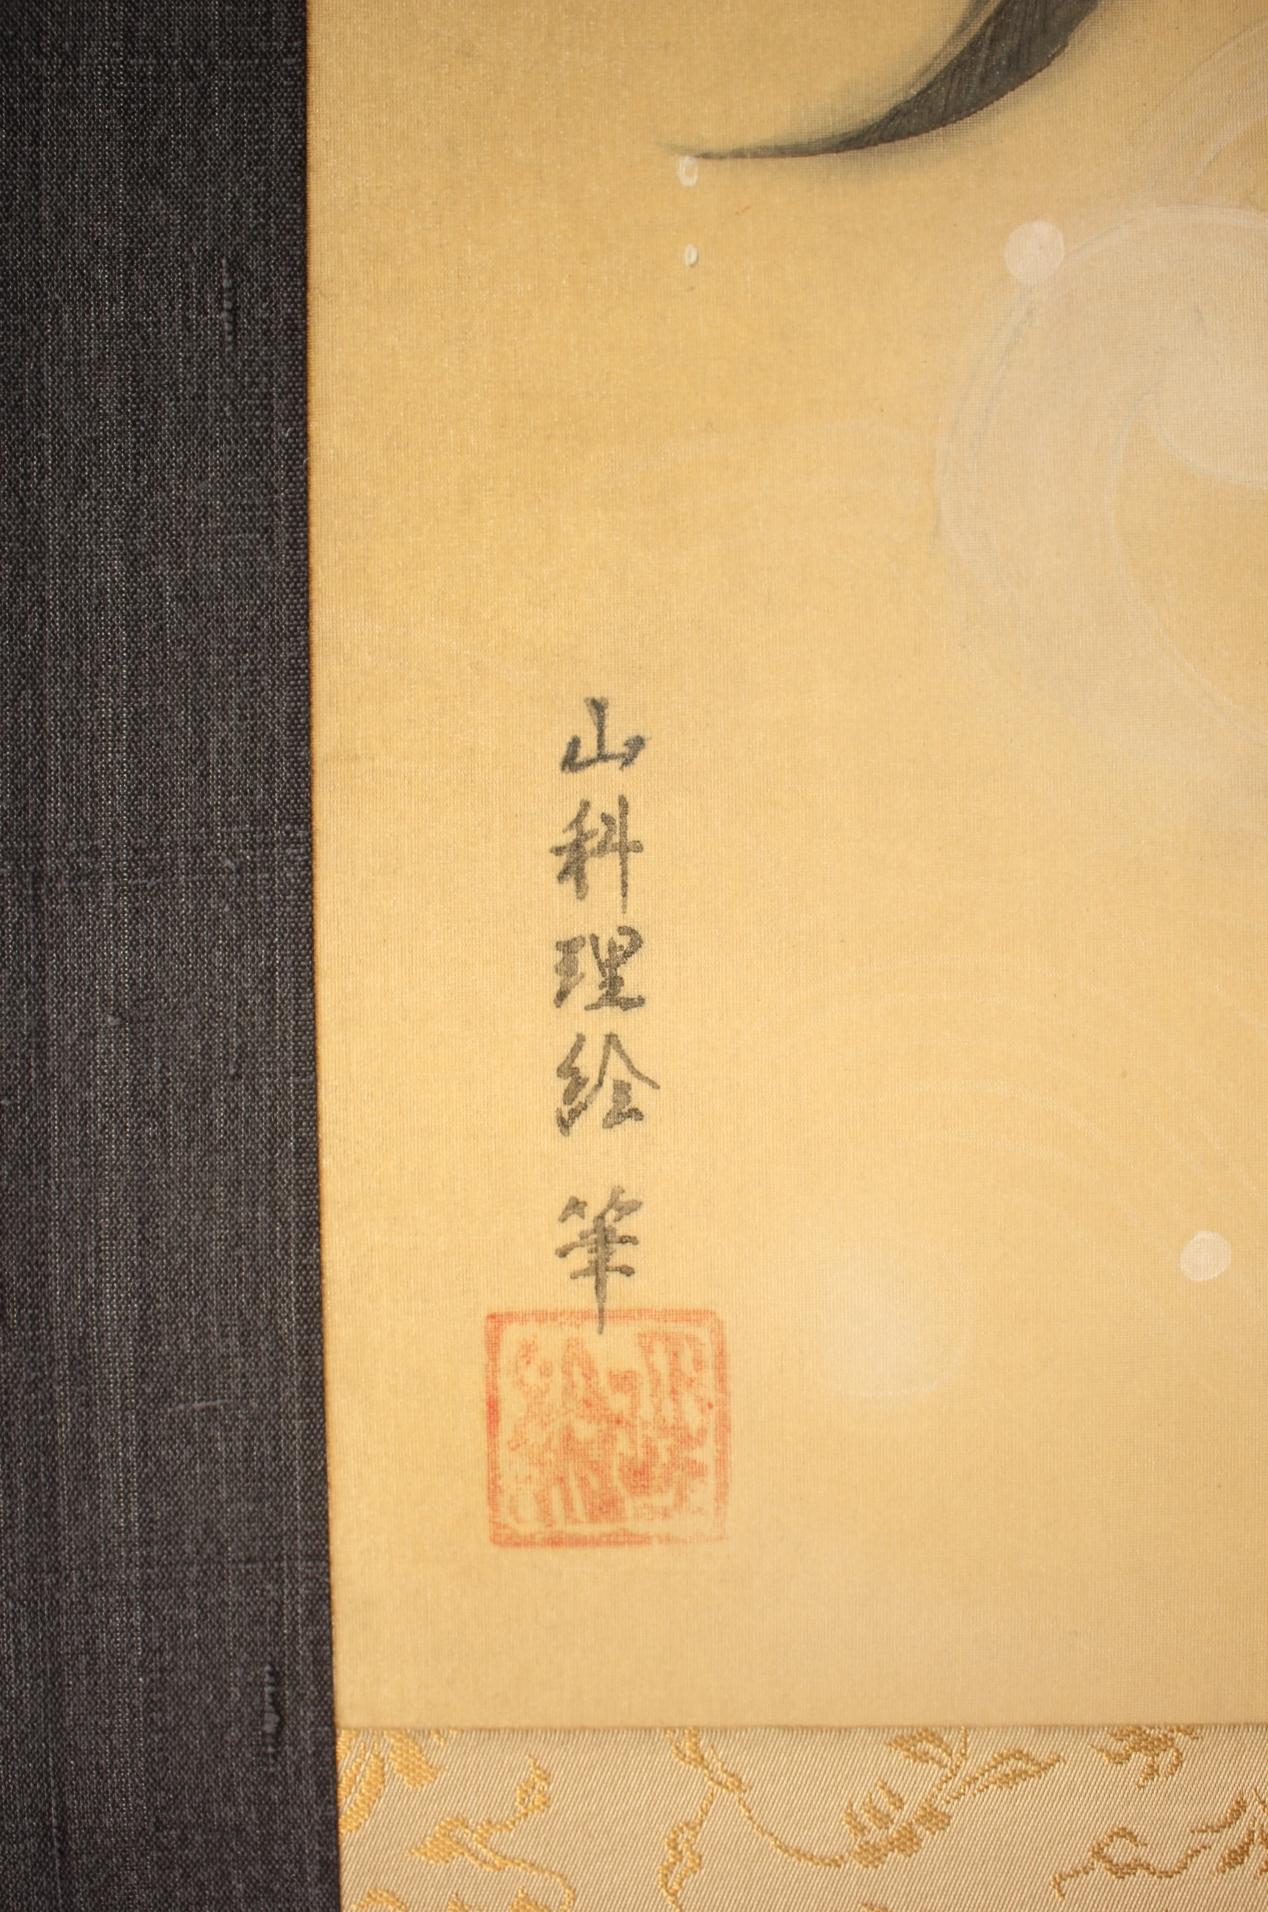 山科理絵 筆